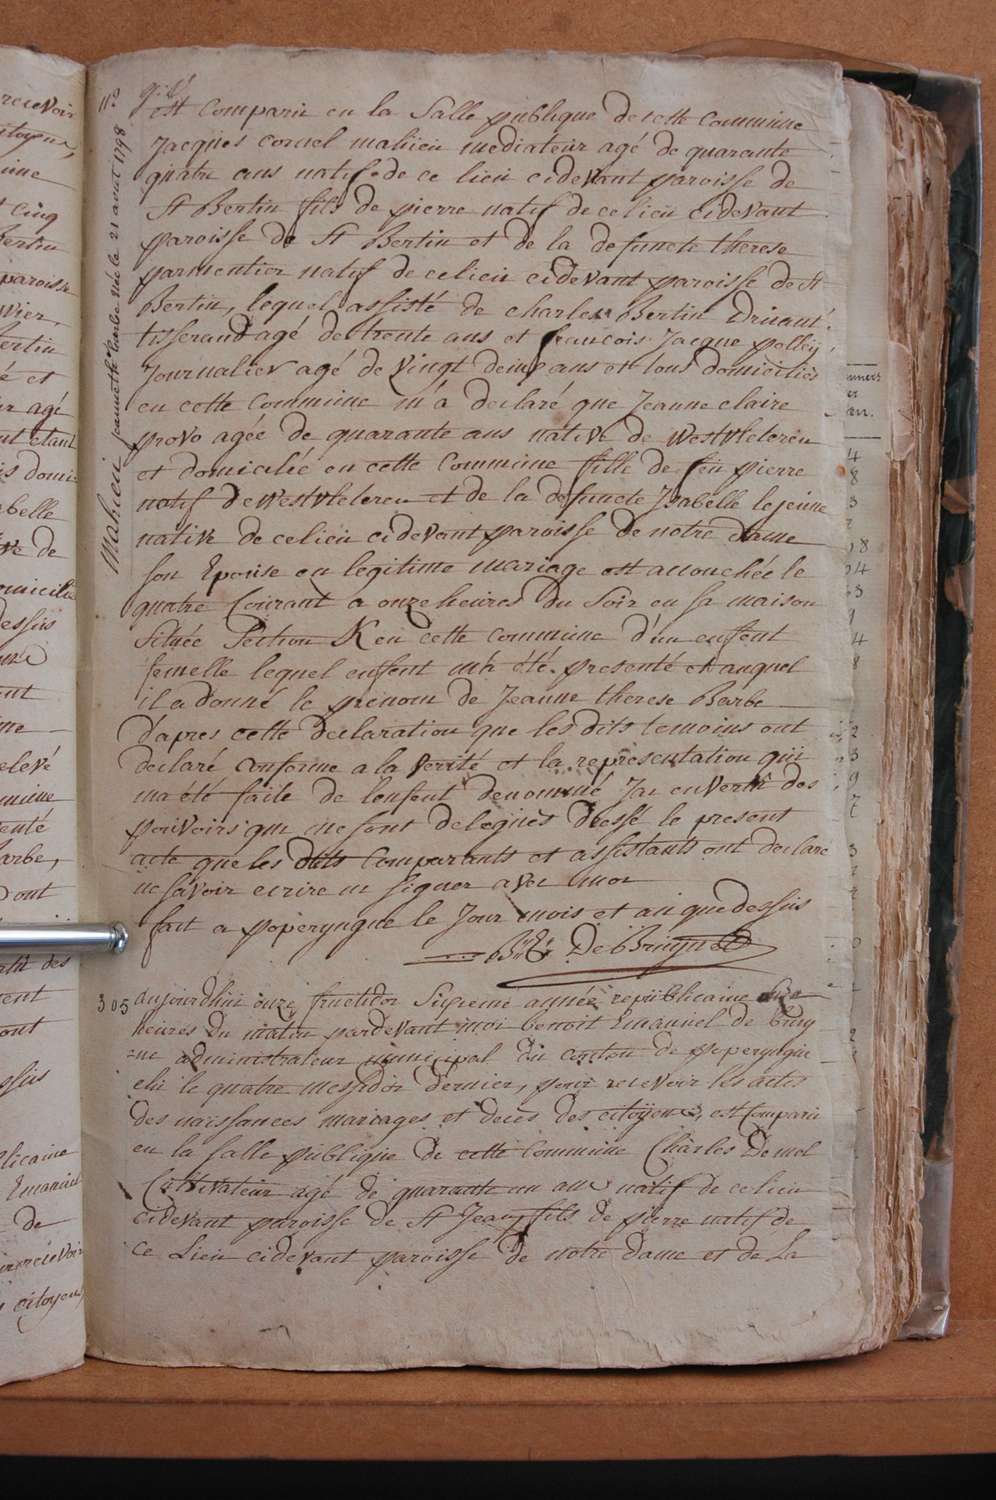 est comparu en la Salle publique de cette commune
Jacques cornel mahieu mediateur agé de quarante
quatre ans natif de ce lieu cidevant paroisse de
St Bertin fils de pierre natif de ce lieu cidevant
paroisse de St Bertin et de la defuncte therese
parmentier natif de ce lieu cidevant paroisse de St
Bertin, lequel assisté de charles Bertin
tisserand agé de trente ans et francois Jacque
Journalier agé de vingt deux ans et tous domiciliés
en cette commune m'a declaré que Jeanne claire
provo agée de quarante ans native de westvleteren
et domiciliée en cette commune fille de feu pierre
natif de westvleteren et de la defuncte Isabelle lejeune
native de ce lieu cidevant paroisse de notre dame
son Epouse en legitime mariage est accouchée le
quatre Courant a onze heures du Soir en sa maison
Située Section K en cette commune d'un enfent
femelle lequel enfent m'a été presenté et auquel
il a donné le prenom de Jeanne therese Barbe
d'apres cette declaration que les dits temoins ont
declaré conforme a la verité et la representation qui
m'a été faite de l'enfent denommé J'ai en vertu des
pouvoirs qui me sont delegués dressé le present
acte que les dits comparants et assistants ont declaré
ne savoir ecrire ni signer avec moi
fait a poperyngue le Jour mois et an que dessus
De Bruyne
Mahieu jeannethe barbe née le 21 aout 1798
305 aujourdhui onze fructidor Sixieme année republicaine
heures du matin pardevant moi benoit Emanuel de bruy
-ne administrateur municipal du canton de poperyngue
elu le quatre messidor dernier, pour recevoir les actes
des naissances mariages et deces des citoyens, est comparu
en la salle publique de cette commune Charles Demol
Cultivateur agé de quarante un ans natif de ce lieu
cidevant paroisse de St Jean fils de pierre natif de
ce Lieu cidevant paroisse de notre dame et de La